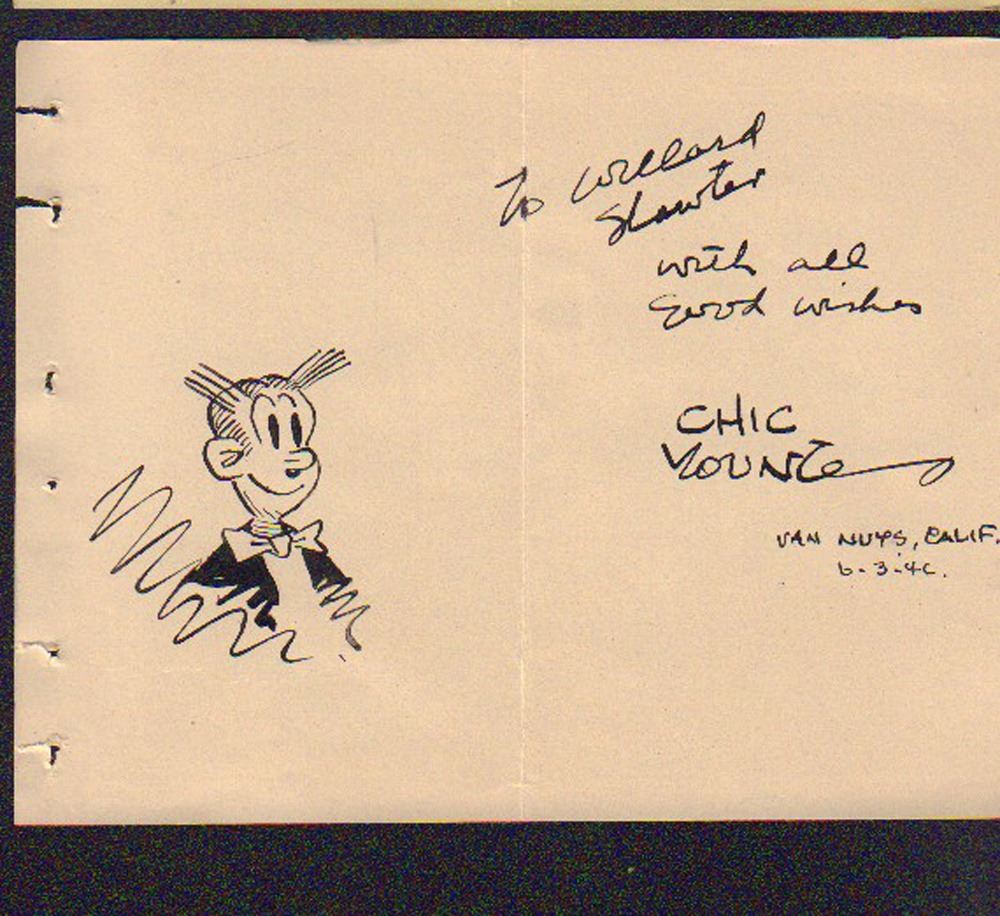 To Willard
Slawter
with all
good wishes
CHIC
YOUNG
VAN NUYS, CALIF.
6-3-4